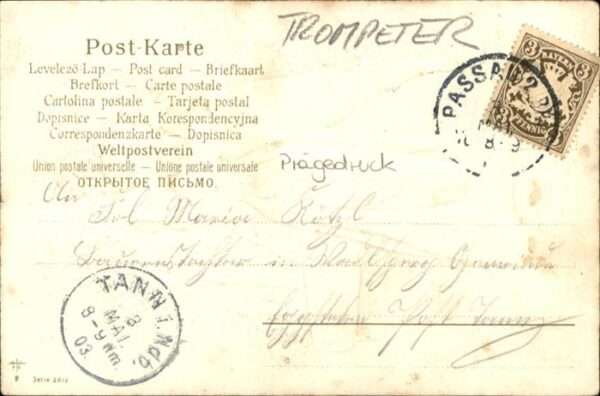 TROMPETER
Post-Karte
Levelező-Lap – Post card – Briefkaart
Brefkort – Carte postale
Cartolina postale – Tarjeta postal
Dopisnice – Karta Korespondencyjna
Correspondenzkarte – Dopisnica
Weltpostverein
Union postale universelle – Unione postale universale
ОТКРЫТОЕ ПИСЬМО.
PASSAU 2
MAI
8-9
BAYERN
3
PFENNIG
Prägedruck
An
Frl Maria Kötzl
Bauerntochter in
Post Tann
TANN I. Ndb.
8
MAI.
8-9 Nm.
03.
Serie